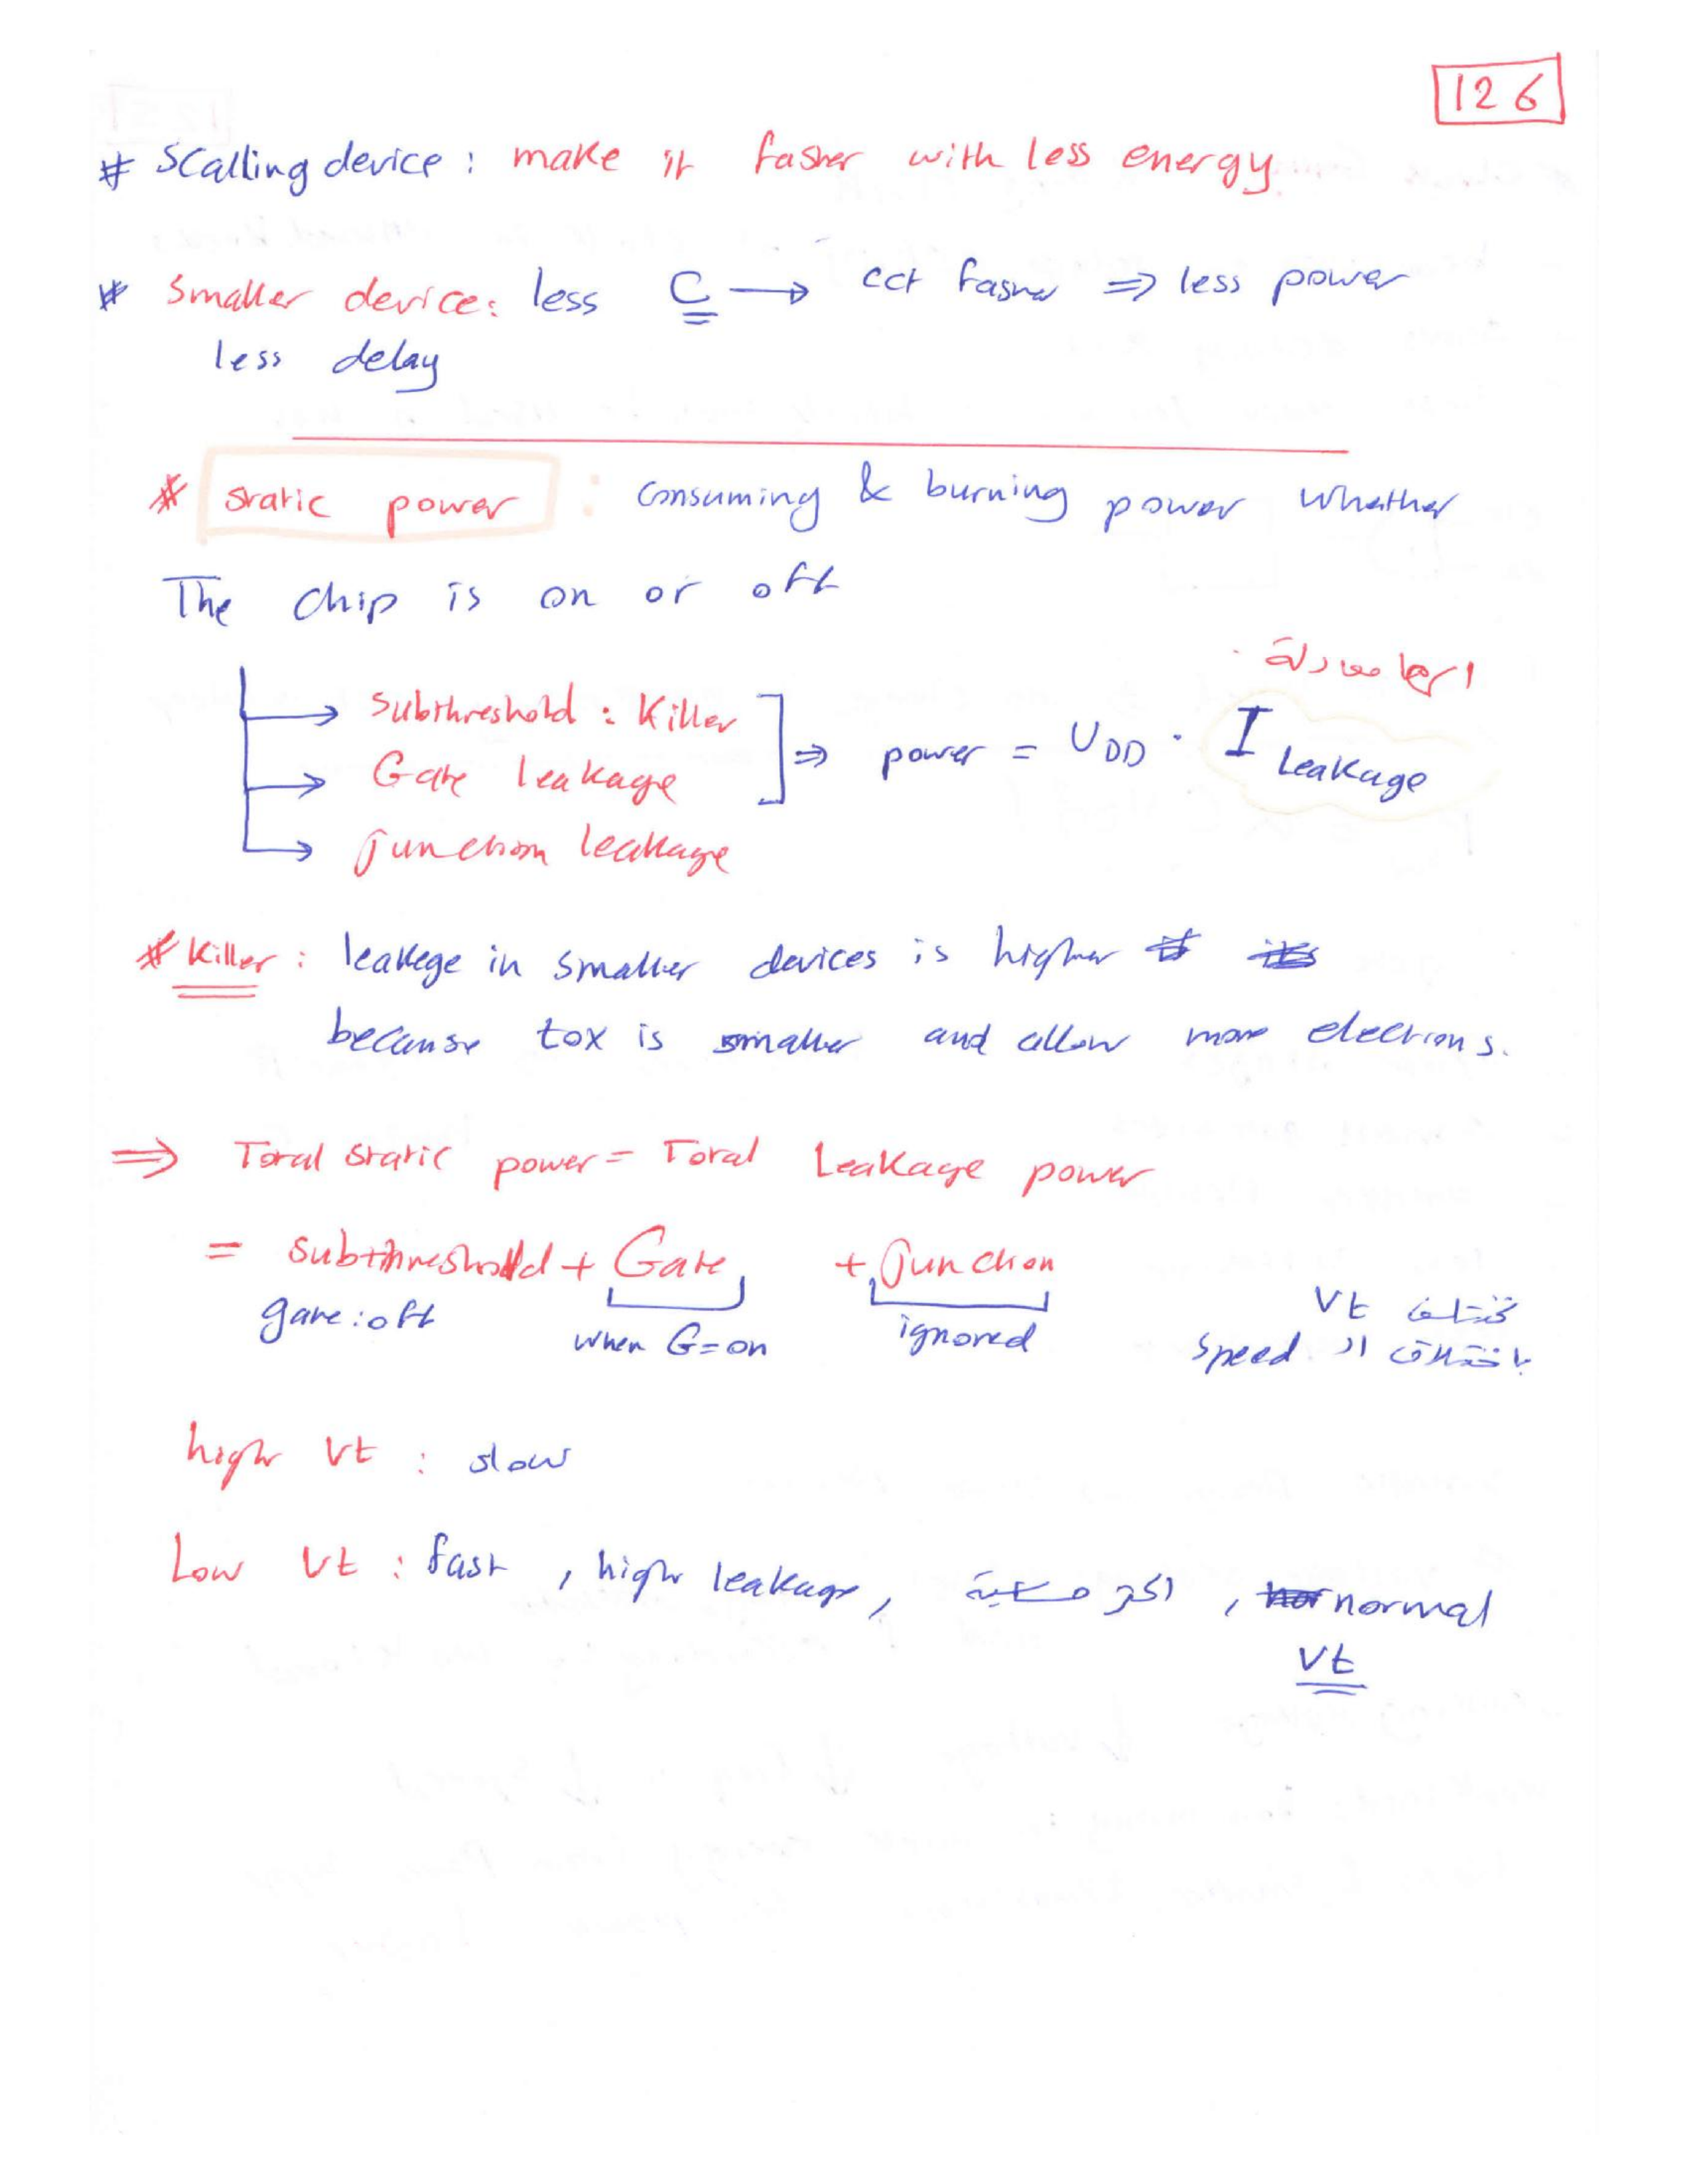 126
# Scalling device : make it faster with less energy
# Smaller device: less C → cct faster ⇒ less power
less delay
# static power : Consuming & burning power whether
The chip is on or off
→ Subthreshold : Killer
→ Gate leakage
→ junction leakage
⇒ power = VDD · I Leakage
معادلة
# Killer : leakege in smaller devices is higher
because tox is smaller and allow more electrons.
⇒ Total static power = Total Leakage power
= subthreshold + Gate + Junction
gate : off
when G=on
ignored
Vt تختلف
باختلاف ال speed
high Vt : slow
Low Vt : fast , high leakage, اكثر , normal
Vt